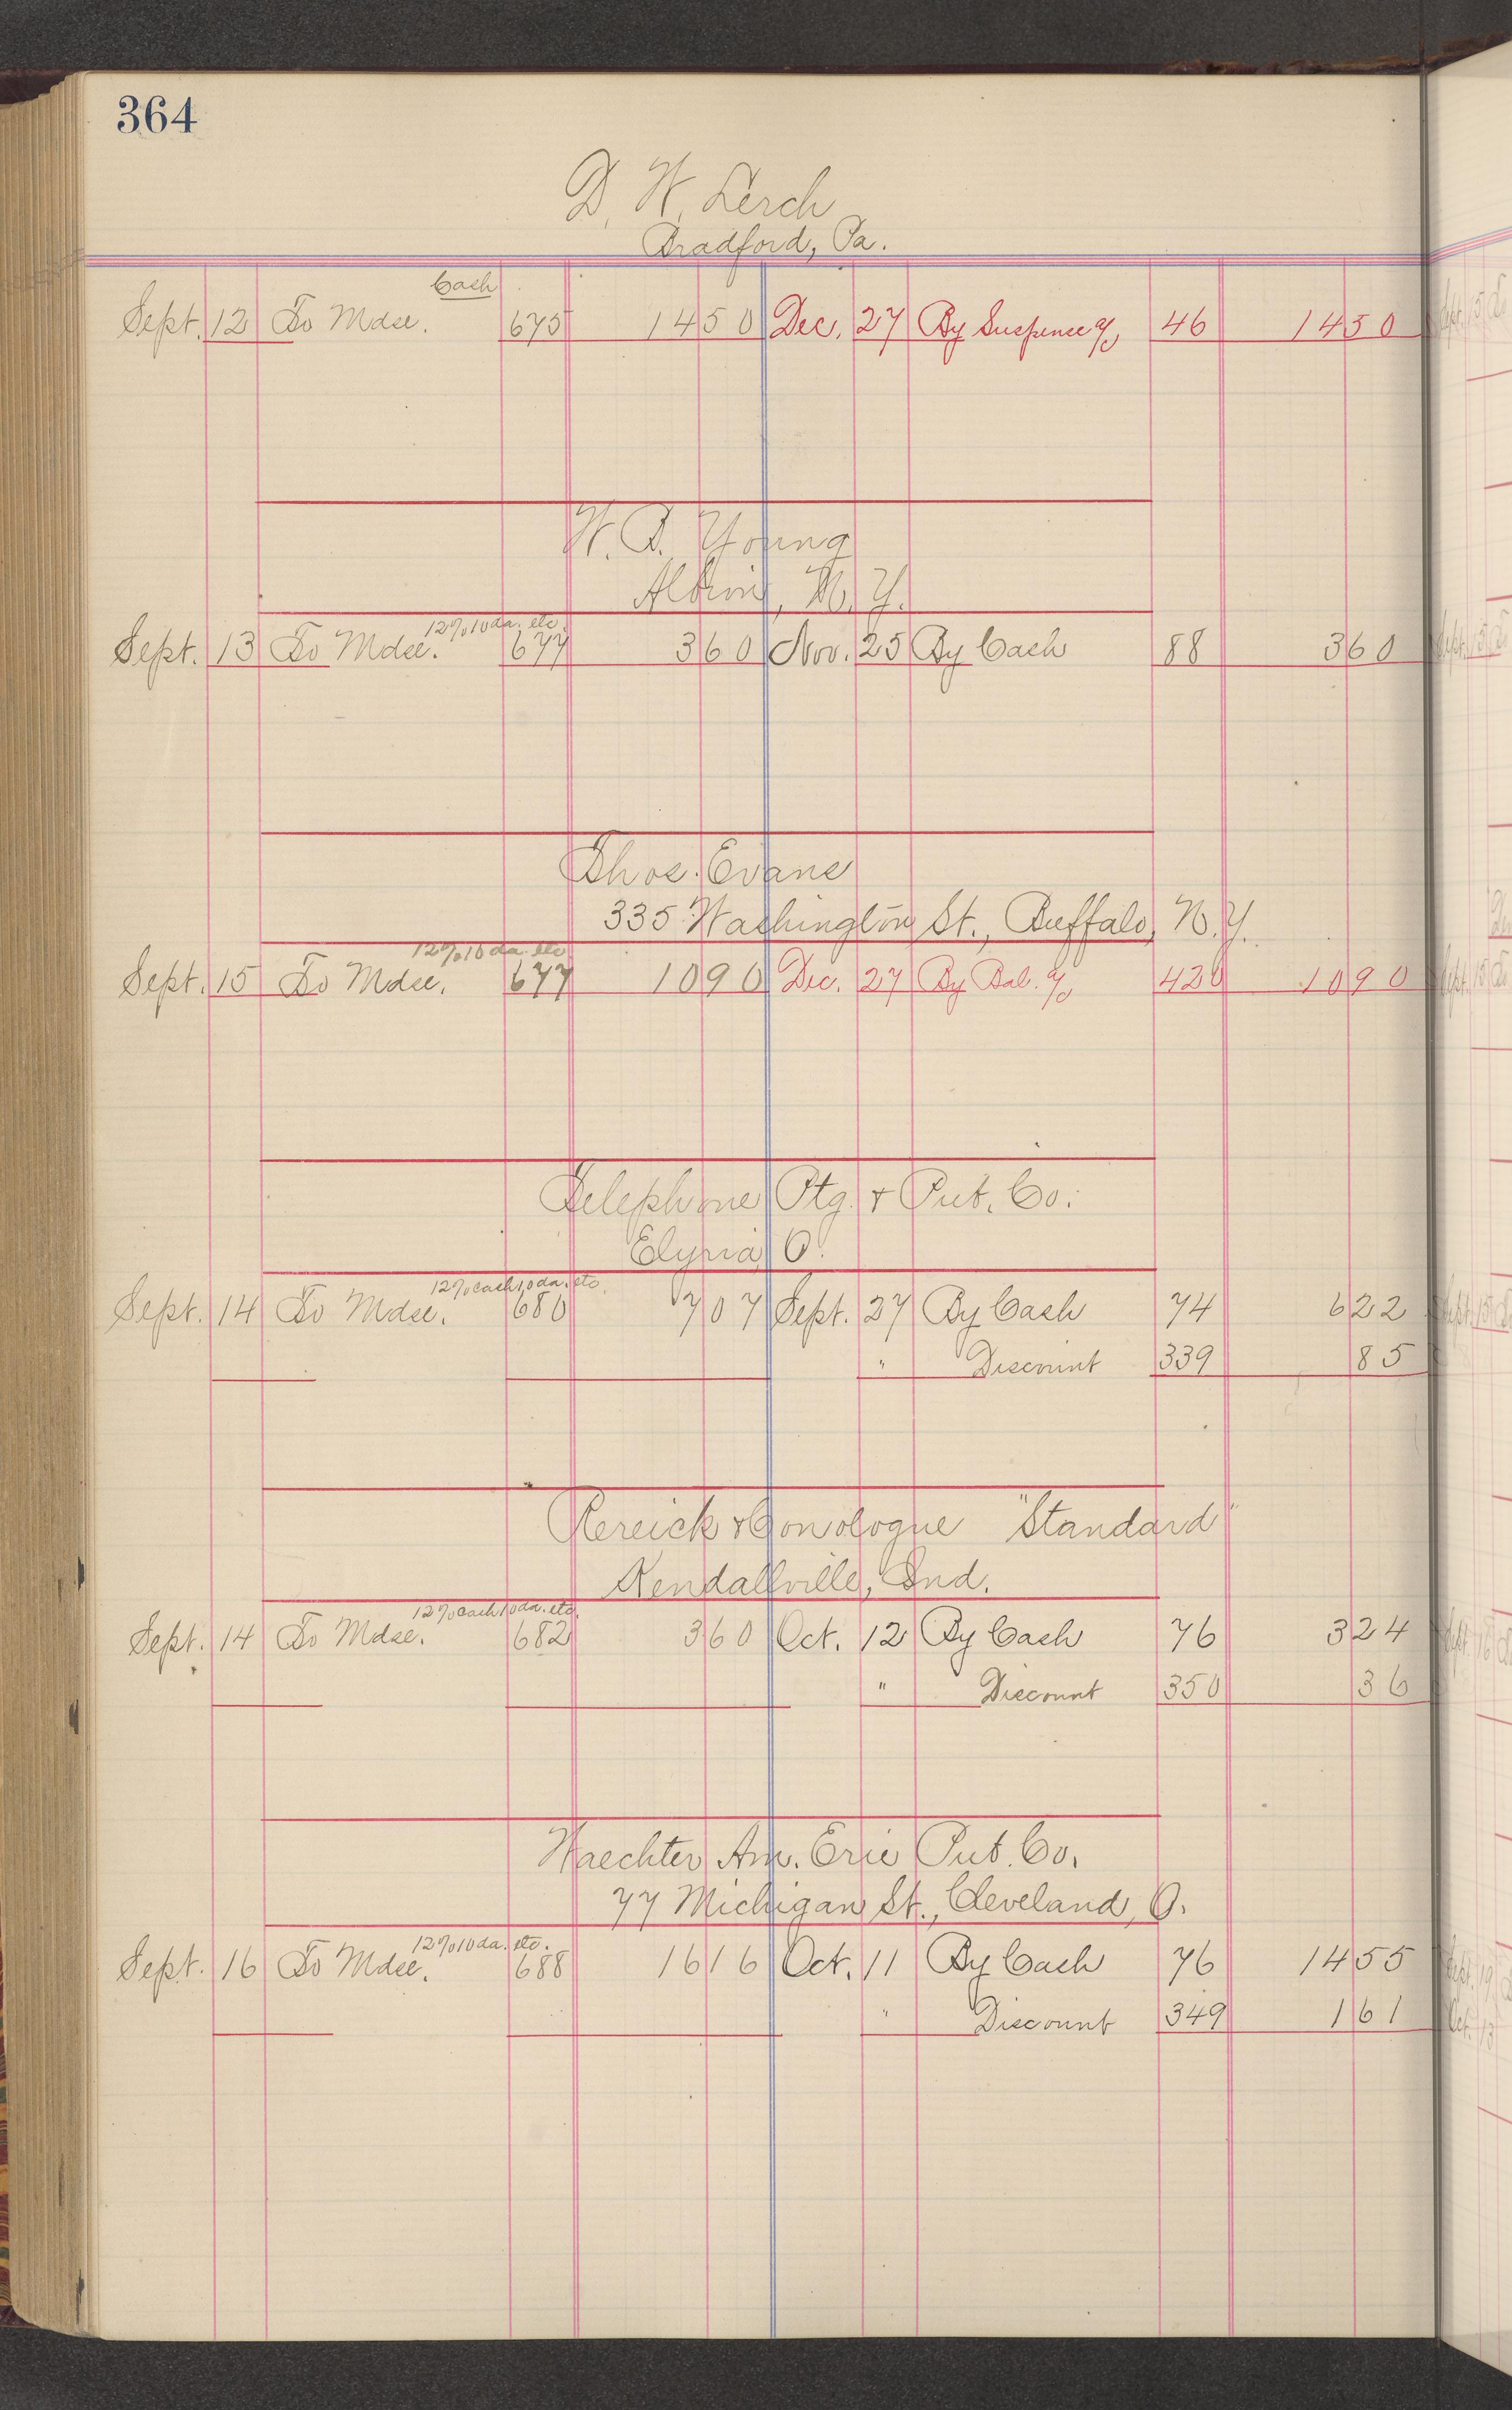 364
D. W. Lerch
Bradford, Pa.
Cash
Sept. 12 To Mdse. 675 14 50 Dec. 27 By Suspense a/c 46 14 50
W. B. Young
Albion, N. Y.
12% 10 da. etc.
Sept. 13 To Mdse. 677 3 60 Nov. 25 By Cash 88 3 60
Thos. Evans
335 Washington St., Buffalo, N. Y.
12% 10 da. etc
Sept. 15 To Mdse. 677 10 90 Dec. 27 By Bal. a/c 420 10 90
Telephone Ptg. & Pub. Co.
Elyria, O.
12% cash 10 da. etc.
Sept. 14 To Mdse. 680 7 07 Sept. 27 By Cash 74 6 22
" Discount 339 85
Rereick & Conologue "Standard"
Kendallville, Ind.
12% cash 10 da. etc.
Sept. 14 To Mdse. 682 3 60 Oct. 12 By Cash 76 3 24
" Discount 350 36
Waechter Am. Erie Pub. Co.
77 Michigan St., Cleveland, O.
12% 10 da. etc.
Sept. 16 To Mdse. 688 16 16 Oct. 11 By Cash 76 14 55
" Discount 349 1 61